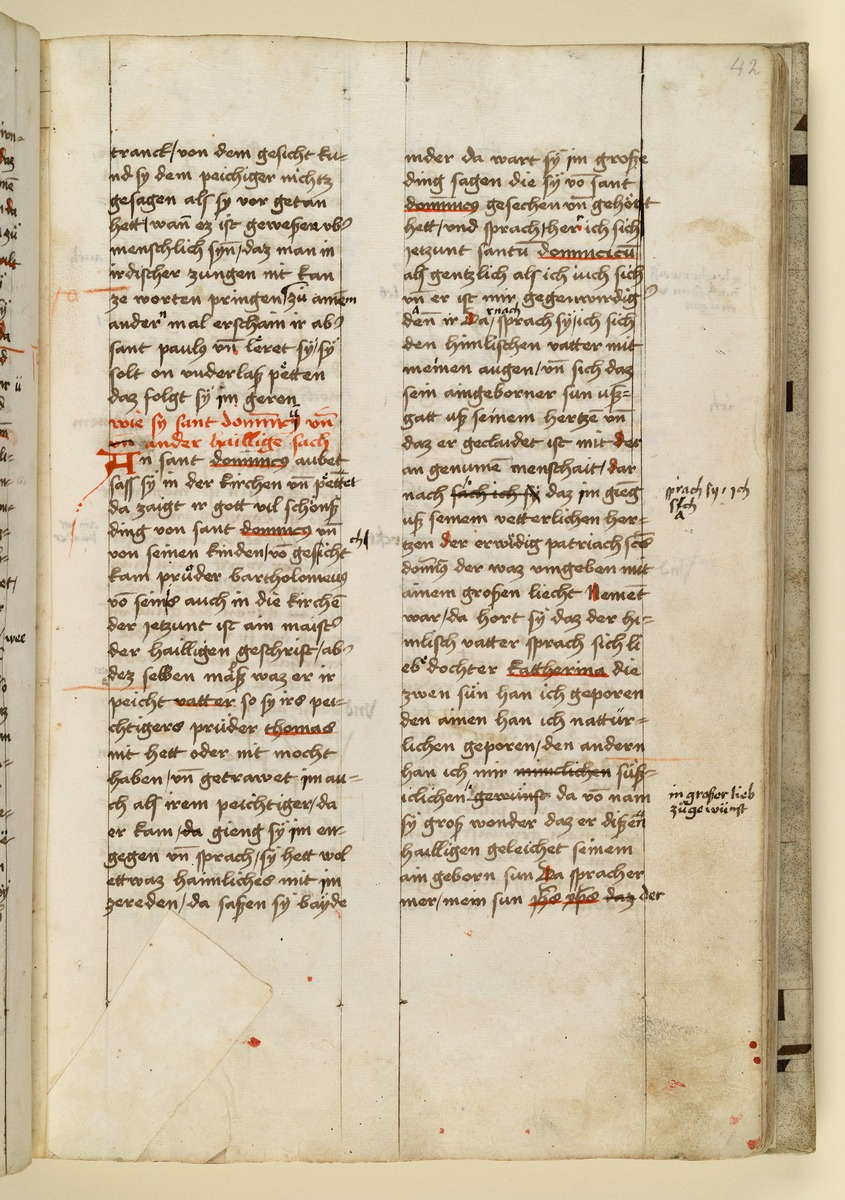 42
tranck / von dem gesicht ku-
nd sy dem peichiger nichtz
gesagen alsß sy vor getan
hett / wann ez ist geweßen vbˀ
menschlich synn / daz man in
irdischer zungen nit kan
ze worten pringen / zu ainem
andern mal erschain ir abˀ
sant paulꝰ vn̄ leret sy / sy
solt on vnderlaß petten
daz folgt sy im geren
wie sy sant dominicꝰ vn̄
vn̄ ander haillige sach
An sant dominicꝰ aubet
sass sy in der kirchen vn̄ pettet
da zaigt ir gott vil schönß
ding von sant dominicꝰ vn̄
von seinen kinden / vō gesicht
kam průder bartholomeus
vō auch in die kirchē
der jetzunt ist ain maistˀ
der hailligen geschrift / abˀ
dez selben mäß waz er ir
peicht vatter so sy irs pei-
chtigers prüder thomas
nit hett oder nit mocht
haben / vn̄ getrawet im au-
ch alß irem peichtiger / da
er kam / da gieng sy im en-
gegen vn̄ sprach / sy hett wol
ettwaz haimliches mit im
zereden / da saßen sy bayde
nider da wart sy im große
ding sagen die sy vō sant
dominicꝰ gesechen vn̄ gehört
hett / vnd sprach / herr ich sich
jetzunt santū dominicū
alß gentzlich alß ich iuch sich
vn̄ er ist mir gegenwirdigˀ
den̄ ir Da / rnach sprach sy / ich sich
den himlischen vatter mit
meinen augen / vn̄ sich daz
sein aingeborner sun uß-
gatt uß seinem hertzē vn̄
daz er geclaidet ist mit der
an genumē menschait / dar
nach sach ich sy daz im gieg
sprach sy / ich
sich
uß seinem vetterlichen her-
tzen der erwidig patriach scs
domīcꝰ der waz vmgeben mit
ainem großen liecht Nement
war / da hort sy daz der hi-
mlisch vatter sprach sich li
ebe dochter kattherina die
zwen sün han ich geporen
den ainen han ich nattür-
lichen geporen / den andern
han ich mir minclichen süß-
iclichen gewünst da vō nam
in großer lieb
zů gewünst
sy groß wonder daz er dißen
hailligen geleichet seinem
ain geborn sun Da spracher
mer / mein sun jhs xps daz der